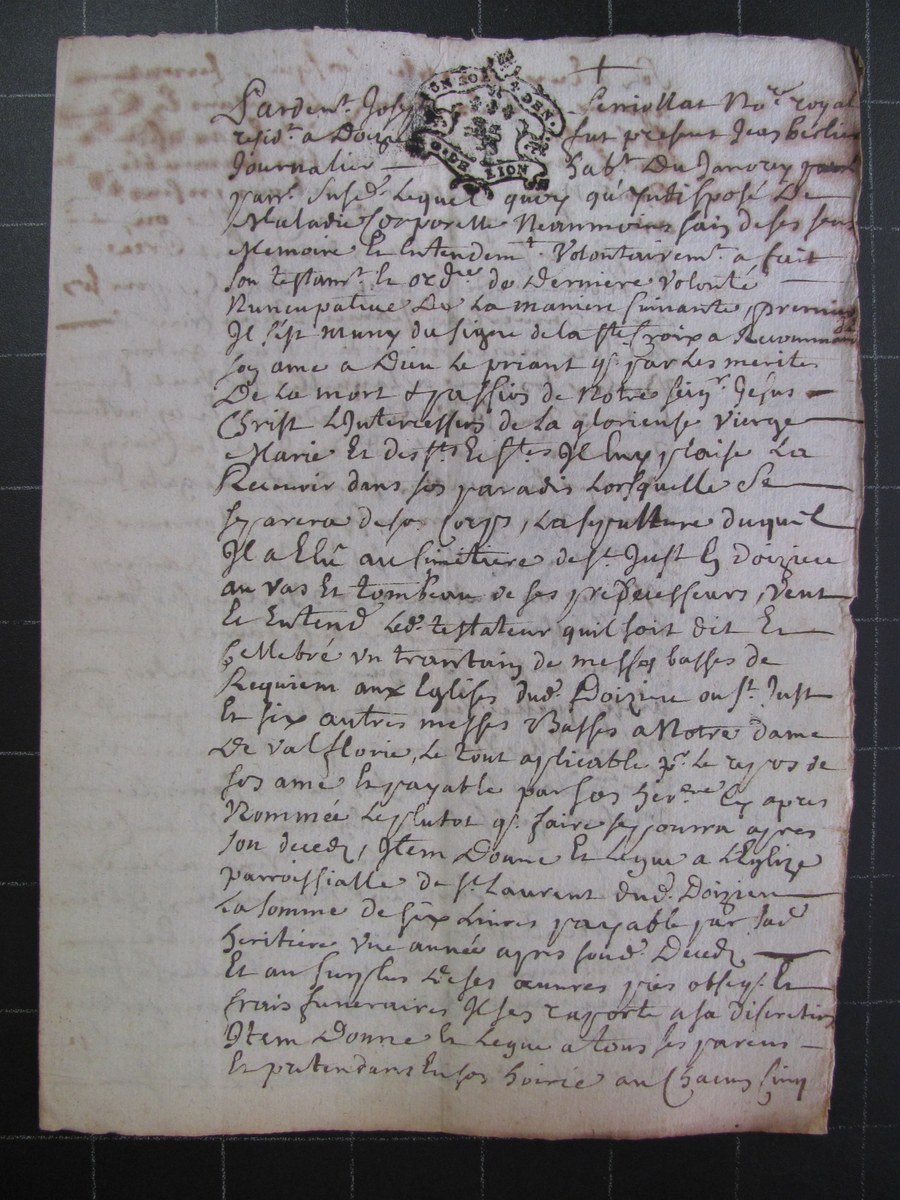 Pardent. Joseph Peniollat No.re royal
resid.t a Doizieu fut present Jean berlier
Journalier hab.t Du Janorey
parr. susd. Lequel quoy qu'indisposé De
Maladie Corporelle Neanmoins sain de ses sens
Memoire Et Entendem.t Volontairem.t a fait
son testam.t Et ord.re de Derniere Volonté
Nuncupative De La maniere suivante, premier
Il s'est muny du signe de la s.te Croix a Recommandé
son ame a Dieu Le priant q. par Les merites
De La mort & passion de Notre seig.r Jesus
Christ L'Intercession de la glorieuse vierge
Marie Et des s.ts Et s.tes Il luy plaise La
Recevoir dans son paradis Lorsquelle Se
separera de son Corps, La sepulture duquel
Il a Elû au simetiere de s.t Just En Doizieu
au vas Et tombeau de ses predecesseurs, Veut
Et Entend Led. testateur quil soit dit Et
Cellebré un trantain de messes basses de
Requiem aux Eglises dud. Doizieu ou s.t Just
Et six autres messes Basses a Notre dame
De valflorie, Le tout aplicable p.r Le repos de
son ame Et payable par son her.re Cy apres
Nommée Le plutot q. faire se pourra apres
son deced, Item Donne Et Legue a L'Eglize
parroissialle de s.t Laurent dud. Doizieu
La somme de six Livres payable par sad.
heritiere une année apres sond. Deced
Et au surplus de ses œuvres pies obseq. Et
frais funeraires Il s'en raporte a sa discretion
Item Donne Et Legue a tous ses parens
Et pretendans En son hoirie au Chacun Cinq